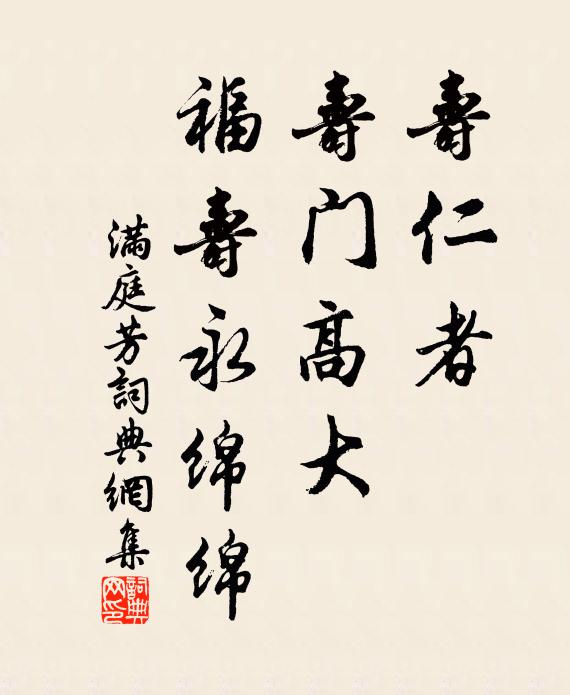 壽仁者
壽门高大
福壽永绵绵
滿庭芳詞典網集
詞典网印